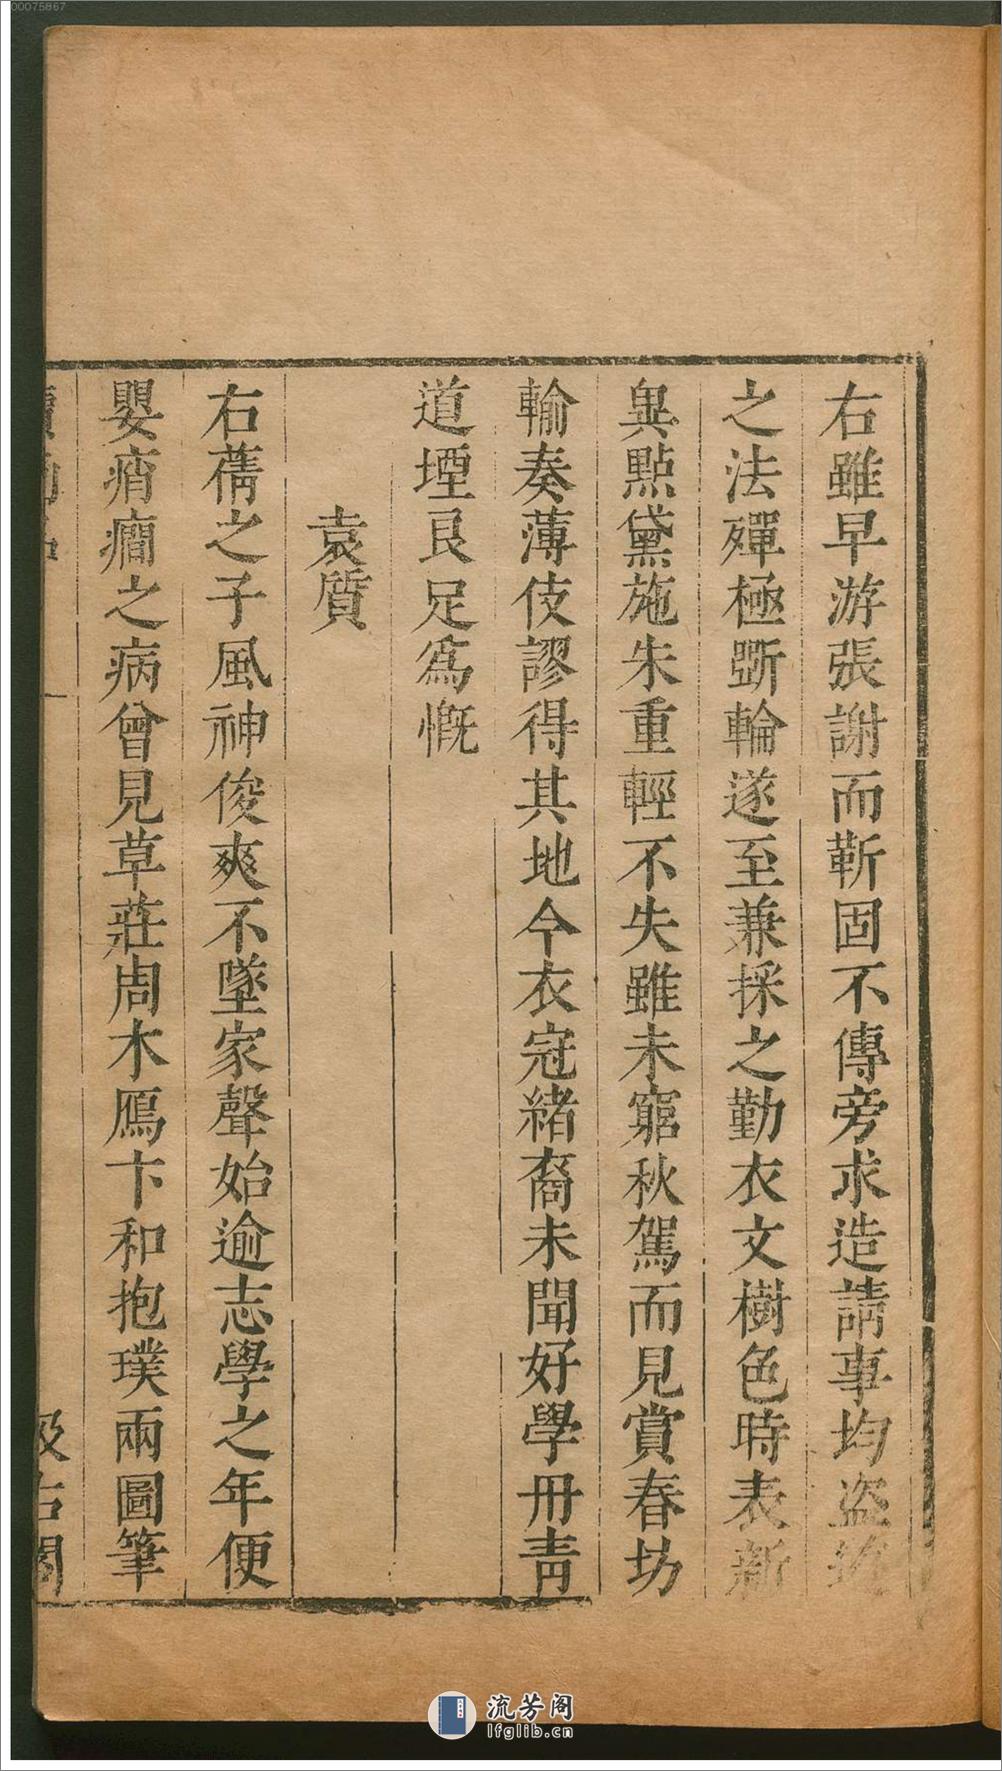 00075867
右雖早游張謝而靳固不傳旁求造請事均盜
之法殫極斲輪遂至兼採之勤衣文樹色時表新
異點黛施朱重輕不失雖未窮秋駕而見賞春坊
輸奏薄伎謬得其地今衣冠緒裔未聞好學冊靑
道堙良足爲慨
袁質
右蒨之子風神俊爽不墜家聲始逾志學之年便
嬰痟癎之病曾見草莊周木鴈卞和抱璞兩圖筆
流芳阁
lfglib.cn